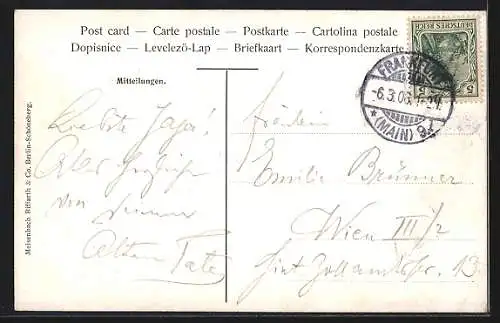 Post card – Carte postale – Postkarte – Cartolina postale
Dopisnice – Levelezö-Lap – Briefkaart – Korrespondenzkarte
DEUTSCHES REICH
5 5
FRANKFURT
-6.3.06.
* (MAIN) 9
Mitteilungen.
Meisenbach Riffarth & Co. Berlin-Schöneberg.
Liebste
Alles
von
Alten
Fräulein
Emilie Brünner
Wien III/2
Hint. Zollamtsstr. 13.